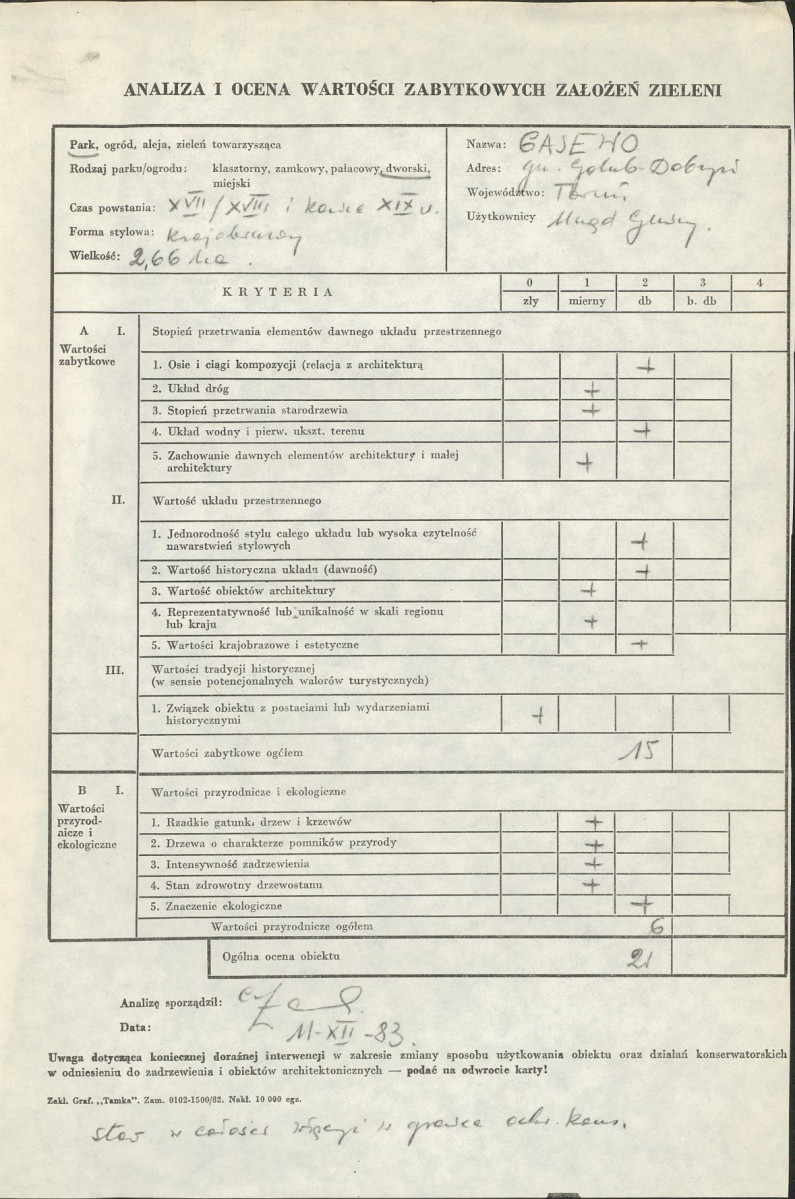 ANALIZA I OCENA WARTOŚCI ZABYTKOWYCH ZAŁOŻEŃ ZIELENI
Park, ogród, aleja, zieleń towarzysząca
Rodzaj parku/ogrodu: klasztorny, zamkowy, pałacowy, dworski,
miejski
Czas powstania: XVII/XVIII i koniec XIX w.
Forma stylowa: krajobrazowy
Wielkość: 2,66 ha.
Nazwa: GAJEWO
Adres: gm. Golub-Dobrzyń
Województwo: Toruń
Użytkownicy Urząd Gminy.
KRYTERIA
0 1 2 3 4
zły mierny db b. db
A I. Stopień przetrwania elementów dawnego układu przestrzennego
Wartości
zabytkowe
1. Osie i ciągi kompozycji (relacja z architekturą +
2. Układ dróg +
3. Stopień przetrwania starodrzewia +
4. Układ wodny i pierw. ukszt. terenu +
5. Zachowanie dawnych elementów architektury i małej
architektury +
II. Wartość układu przestrzennego
1. Jednorodność stylu całego układu lub wysoka czytelność
nawarstwień stylowych +
2. Wartość historyczna układu (dawność) +
3. Wartość obiektów architektury +
4. Reprezentatywność lub unikalność w skali regionu
lub kraju +
5. Wartości krajobrazowe i estetyczne +
III. Wartości tradycji historycznej
(w sensie potencjonalnych walorów turystycznych)
1. Związek obiektu z postaciami lub wydarzeniami
historycznymi +
Wartości zabytkowe ogółem 15
B I. Wartości przyrodnicze i ekologiczne
Wartości
przyrod-
nicze i
ekologiczne
1. Rzadkie gatunki drzew i krzewów +
2. Drzewa o charakterze pomników przyrody +
3. Intensywność zadrzewienia +
4. Stan zdrowotny drzewostanu +
5. Znaczenie ekologiczne +
Wartości przyrodnicze ogółem 6
Ogólna ocena obiektu 21
Analizę sporządził:
Data: 11-XII-83.
Uwaga dotycząca koniecznej doraźnej interwencji w zakresie zmiany sposobu użytkowania obiektu oraz działań konserwatorskich
w odniesieniu do zadrzewienia i obiektów architektonicznych — podać na odwrocie karty!
Zakł. Graf. „Tamka". Zam. 0102-1500/82. Nakł. 10 000 egz.
staw w całości w granice ochr. kons.